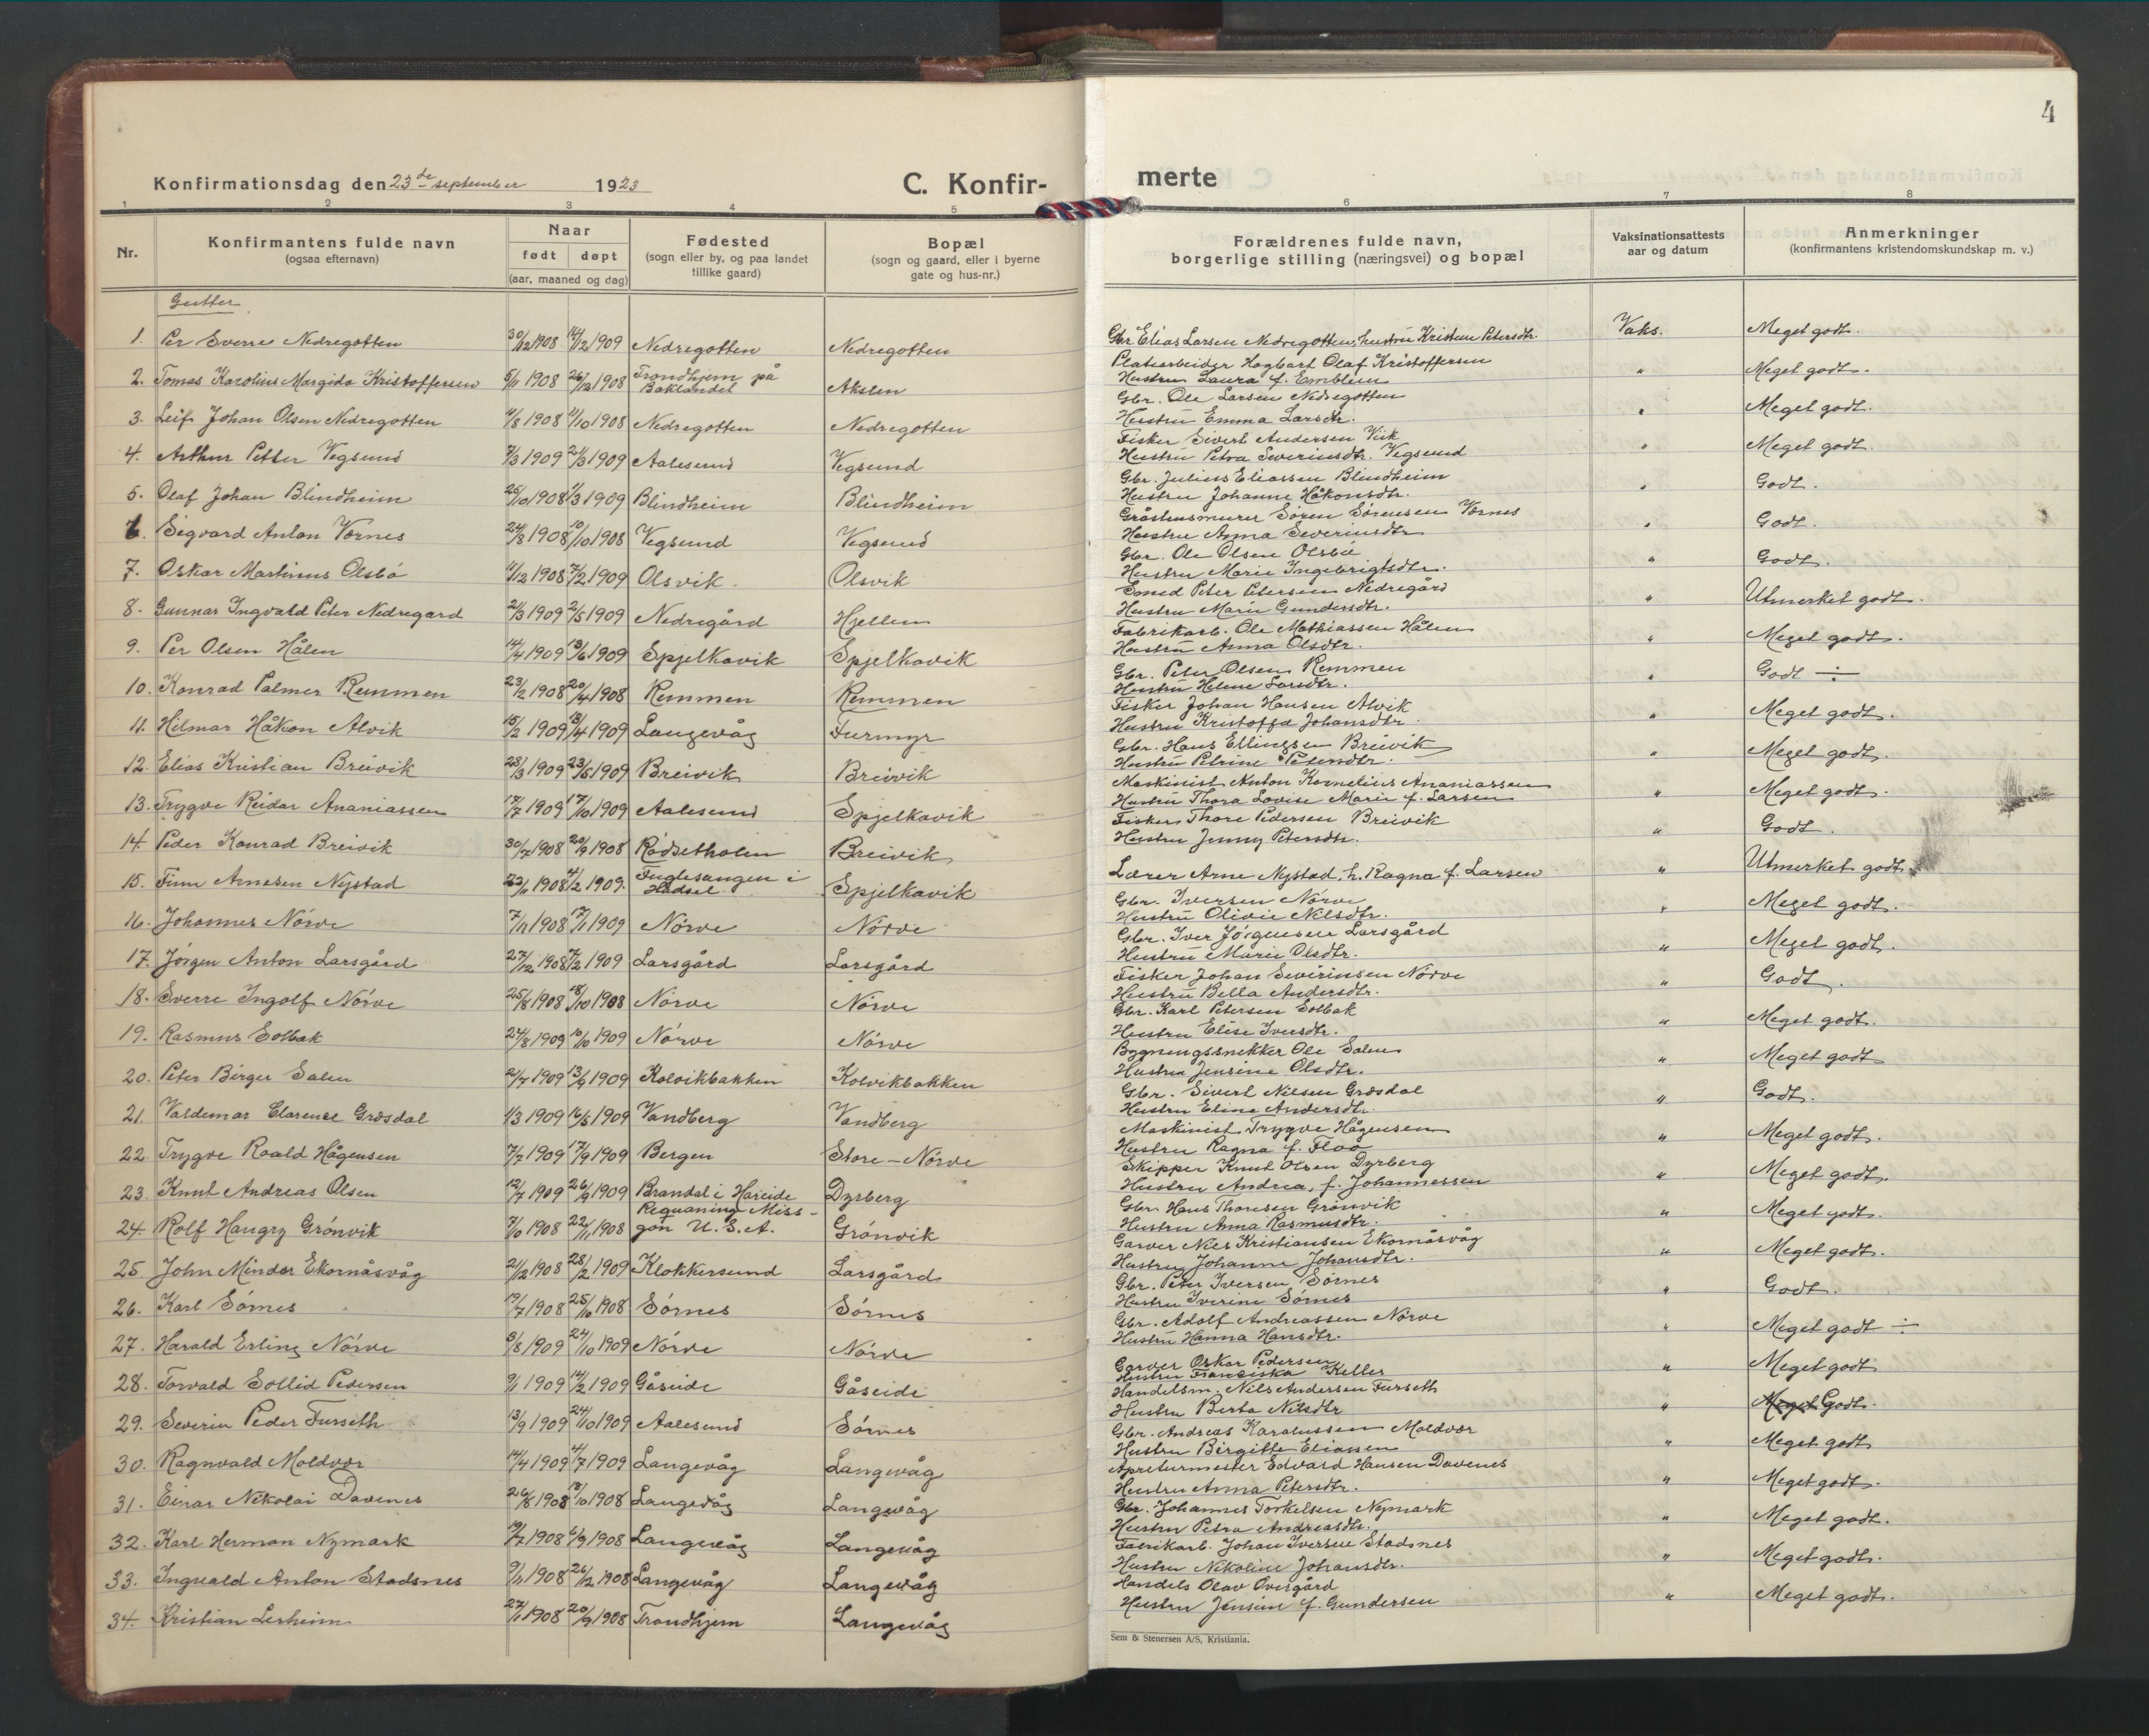 4
Konfirmationsdag den 23de september 1923
C. Konfir-
merte
1 2 3 4 5 6 7 8
Nr.
Konfirmantens fulde navn
(ogsaa efternavn)
Naar
født døpt
(aar, maaned og dag)
Fødested
(sogn eller by, og paa landet
tillike gaard)
Bopæl
(sogn og gaard, eller i byerne
gate og hus-nr.)
Forældrenes fulde navn,
borgerlige stilling (næringsvei) og bopæl
Vaksinationsattests
aar og datum
Anmerkninger
(konfirmantens kristendomskundskap m. v.)
Gutter
1. Per Sverre Nedregotten 30/12 1908 14/2 1909 Nedregotten Nedregotten Gbr. Elias Larsen Nedregotten, hustru Kristine Petersdtr. Vaks. Meget godt.
2. Tomas Karolius Margido Kristoffersen 5/11 1908 26/12 1908 Trondhjem på Baklandet Akslen Platearbeider Hagbart Olaf Kristoffersen
Hustru Laura f. Emblem " Meget godt.
3. Leif Johan Olsen Nedregotten 4/8 1908 11/10 1908 Nedregotten Nedregotten Gbr. Ole Larsen Nedregotten
Hustru Emma Larsdtr. " Meget godt.
4. Arthur Petter Vegsund 7/3 1909 21/3 1909 Aalesund Vegsund Fisker Sivert Andersen Viik
Hustru Petra Severinsdtr. Vegsund " Meget godt.
5. Olaf Johan Blindheim 25/10 1908 1/3 1909 Blindheim Blindheim Gbr. Julius Eliassen Blindheim
Hustru Johanne Håkonsdtr. " Godt.
6. Sigvard Anton Vørnes 24/8 1908 10/10 1908 Vegsund Vegsund Gråstensmurer Søren Sørensen Vørnes
Hustru Anna Severinsdtr " Godt.
7. Oskar Martinus Olsbö 11/12 1908 7/2 1909 Olsvik. Olsvik Gbr. Ole Olsen Olsbö
Hustru Marie Ingebrigtsdtr. " Godt.
8. Gunnar Ingvald Peter Nedregard 2/3 1909 2/5 1909 Nedregård Hjellen Smed Peter Petersen Nedregård
Hustru Marie Gundersdtr. " Utmerket godt.
9. Per Olsen Hålen 14/4 1909 13/6 1909 Spjelkavik Spjelkavik Fabrikarb. Ole Mathiassen Hålen
Hustru Anna Olsdtr. " Meget godt.
10. Konrad Palmer Remmen 23/2 1908 20/4 1908 Remmen Remmen Gbr. Peter Olsen Remmen
Hustru Helene Larsdtr. " Godt ÷
11. Hilmar Håkon Alvik 15/2 1909 13/4 1909 Langevåg Furmyr Fisker Johan Hansen Alvik
Hustru Kristoffa Johansdtr. " Meget godt.
12. Elias Kristian Breivik 28/3 1909 23/5 1909 Breivik Breivik Gbr. Hans Ellingsen Breivik
Hustru Petrine Petersdtr. " Meget godt.
13. Trygve Reidar Ananiassen 17/7 1909 17/10 1909 Aalesund Spjelkavik Maskinist Anton Kornelius Ananiassen
Hustru Thora Lovise Marie f. Larsen " Meget godt.
14. Peder Konrad Breivik 30/7 1908 20/9 1908 Rödsetholen Breivik Fisker Thore Pedersen Breivik
Hustru Jenny Petersdtr. " Godt.
15. Finn Arnesen Nystad 22/11 1908 4/2 1909. Fuglesangen i Hadsel Spjelkavik Lærer Arne Nystad, h. Ragna f. Larsen " Utmerket godt.
16. Johannes Nörve 7/11 1908 17/1 1909 Nörve Nörve Gbr. Iversen Nörve
Hustru Olivie Nilsdtr. " Meget godt.
17. Jörgen Anton Larsgård 27/12 1908 7/2 1909 Larsgård Larsgård Gbr. Iver Jörgensen Larsgård
Hustru Marie Olsdtr. " Meget godt.
18. Sverre Ingolf Nörve 25/8 1908 18/10 1908 Nörve Nörve Fisker Johan Severinsen Nörve
Hustru Bella Andersdtr. " Godt.
19. Rasmus Solbak 24/8 1909 10/10 1909 Nörve Nörve Gbr. Karl Petersen Solbak
Hustru Elise Iversdtr. " Meget godt.
20. Peter Birger Salen 2/7 1909 13/9 1909 Kolvikbakken Kolvikbakken Bygningssnekker Ole Salen
Hustru Jensine Olsdtr. " Meget godt
21. Valdemar Clarence Græsdal 1/3 1909 16/5 1909 Vandberg Vandberg Gbr. Sivert Nilsen Græsdal
Hustru Eline Andersdtr. " Godt.
22. Trygve Roald Hågensen 7/7 1909 17/9 1909 Bergen Store-Nörve Maskinist Trygve Hågensen
Hustru Ragna f. Floo " Meget godt.
23. Knut Andreas Olsen 12/7 1909 26/9 1909 Brandal i Hareide Dyrberg Skipper Knut Olsen Dyrberg
Hustru Andrea, f. Johannessen " Meget godt.
24. Rolf Haugry Grönvik 7/10 1908 22/11 1908 Requaning Miss-
gon U.S.A. Grönvik Gbr. Hans Thorsen Grönvik
Hustru Anna Rasmusdtr. " Meget godt.
25. John Mindor Ekornåsvåg 2/12 1908 28/2 1909 Klokkersund Larsgård Garver Nils Kristiansen Ekornåsvåg
Hustru Johanne Johansdtr. " Meget godt.
26. Karl Sörnes 19/7 1908 25/10 1908 Sörnes Sörnes Gbr. Peter Iversen Sörnes
Hustru Iverine Sörnes " Godt.
27. Harald Erling Nörve 3/8 1909 24/10 1909 Nörve Nörve Gbr. Adolf Andreassen Nörve
Hustru Hanna Hansdtr. " Meget godt ÷
28. Torvald Sollid Pedersen 9/1 1909 14/2 1909 Gåseide Gåseide Garver Oskar Pedersen
Hustru Franciska Keller " Meget godt
29. Severin Peder Furseth 13/9 1909 24/10 1909 Aalesund Sörnes Handelsm. Nils Andersen Furseth
Hustru Berta Nilsdtr " Meget Godt.
30. Ragnvald Moldvær 14/4 1909 4/7 1909 Langevåg Langevåg Gbr. Andreas Karolussen Moldvær
Hustru Birgitte Eliassen " Meget godt
31. Einar Nikolai Davenes 26/8 1908 18/10 1908 Langevåg Langevåg Apreturmester Edvard Hansen Davenes
Hustru Anna Petersdtr. " Meget godt.
32. Karl Herman Nymark 19/7 1908 6/9 1908 Langevåg Langevåg Gbr. Johannes Torkelsen Nymark
Hustru Petra Andreasdtr. " Meget godt.
33. Ingvald Anton Stadsnes 9/11 1908 26/12 1908 Langevåg Langevåg Fabrikarb. Johan Iversen Stadsnes
Hustru Nikoline Johansdtr. " Meget godt.
34. Kristian Lerheim 27/1 1908 20/9 1908 Trondhjem Langevåg Handels Olav Övergård
Hustru Jensine f. Gundersen " Meget godt.
Sem & Stenersen A/S, Kristiania.